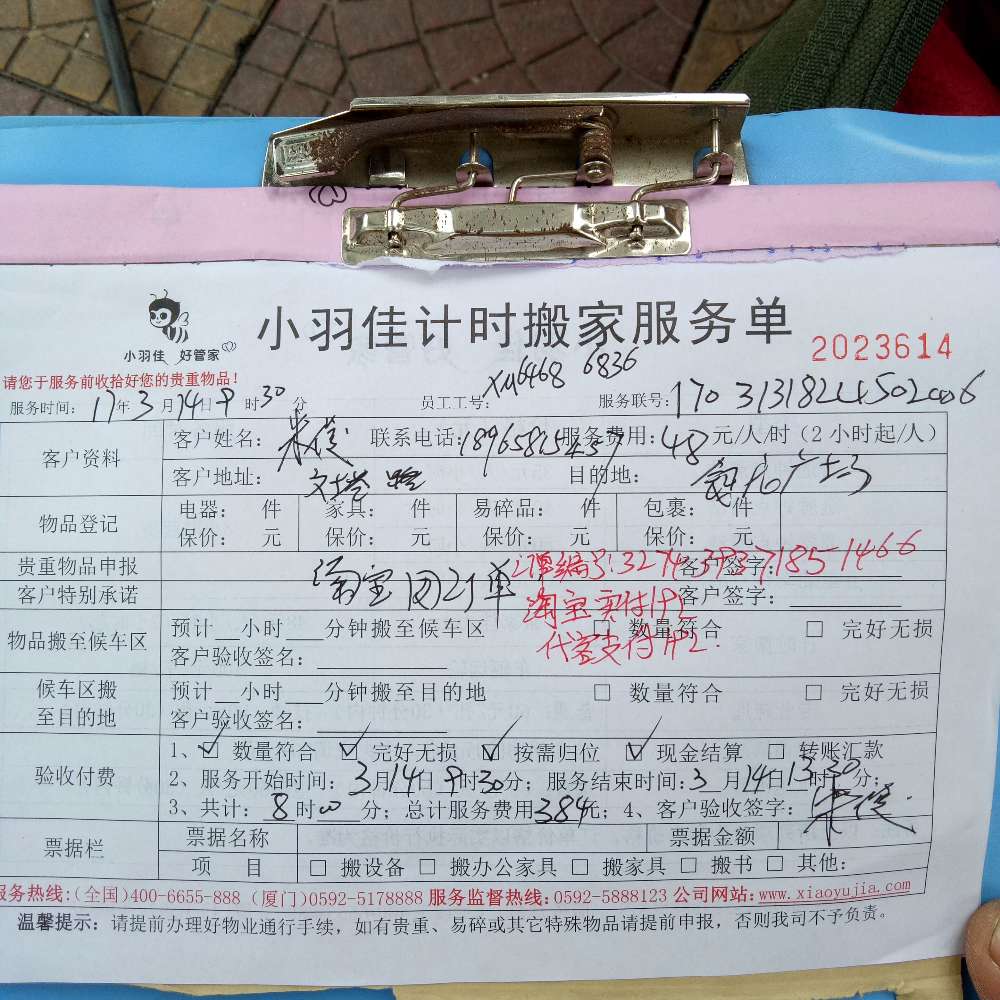 小羽佳计时搬家服务单
小羽佳 好管家
2023614
请您于服务前收拾好您的贵重物品!
服务时间: 17年3月14日9时30分 员工工号: XM6468 6836 服务联号:
客户资料 客户姓名: 联系电话: 服务费用: 48 元/人/时(2小时起/人)
客户地址: 文塔路 目的地:
物品登记 电器: 件 家具: 件 易碎品: 件 包裹: 件
保价: 元 保价: 元 保价: 元 保价: 元
贵重物品申报 淘宝团订单 订单编号:3274393718551466 客户签字:
客户特别承诺 淘宝实付 客户签字:
物品搬至候车区 预计__小时___分钟搬至候车区 □ 数量符合 □ 完好无损
客户验收签名: 代客支付
候车区搬至目的地 预计__小时___分钟搬至目的地 □ 数量符合 □ 完好无损
客户验收签名:
验收付费 1、☑ 数量符合 ☑ 完好无损 ☑ 按需归位 ☑ 现金结算 □ 转账汇款
2、服务开始时间: 3月14日9时30分; 服务结束时间: 3月14日13时30分;
3、共计: 8时00分; 总计服务费用384元; 4、客户验收签字:
票据栏 票据名称 票据金额
项 目 □ 搬设备 □ 搬办公家具 □ 搬家具 □ 搬书 □ 其他:
服务热线:(全国)400-6655-888 (厦门)0592-5178888 服务监督热线:0592-5888123 公司网站:www.xiaoyujia.com
温馨提示: 请提前办理好物业通行手续,如有贵重、易碎或其它特殊物品请提前申报,否则我司不予负责。